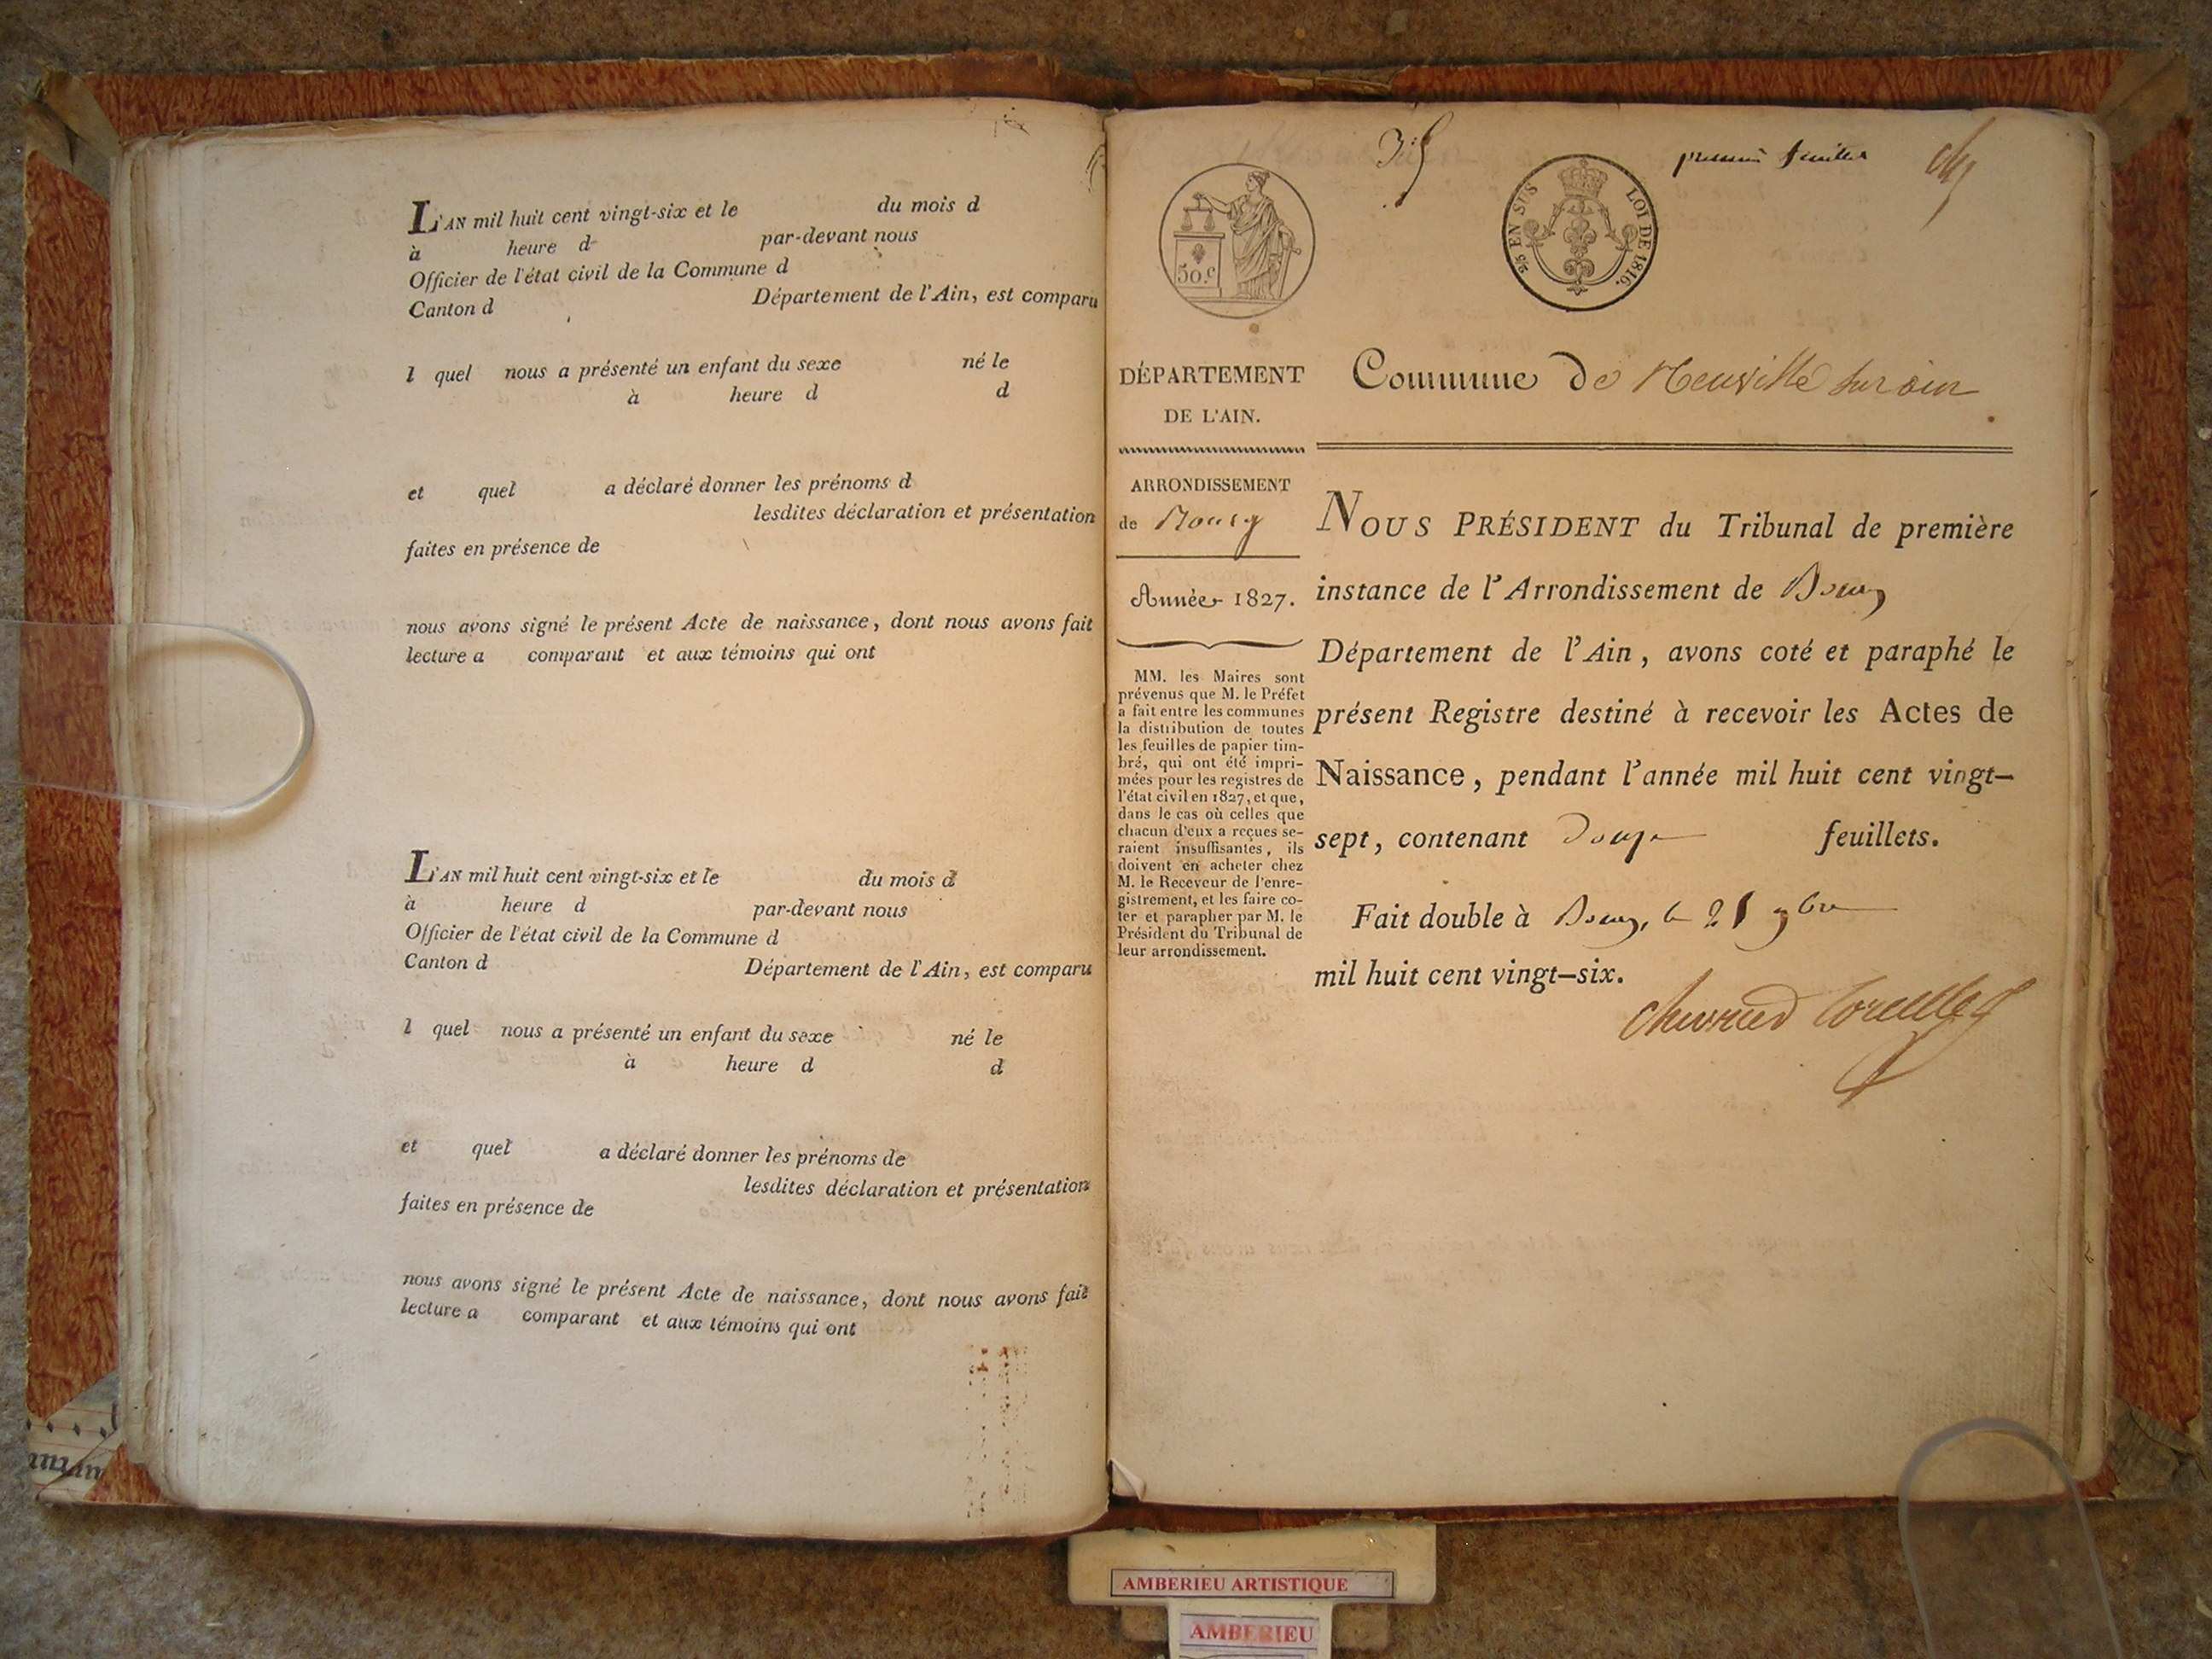 L'AN mil huit cent vingt-six et le du mois d
à heure d par-devant nous
Officier de l'état civil de la Commune d
Canton d Département de l'Ain, est comparu
l quel nous a présenté un enfant du sexe né le
à heure d d
et quel a déclaré donner les prénoms d
lesdites déclaration et présentation
faites en présence de
nous avons signé le présent Acte de naissance, dont nous avons fait
lecture a comparant et aux témoins qui ont
L'AN mil huit cent vingt-six et le du mois d
à heure d par-devant nous
Officier de l'état civil de la Commune d
Canton d Département de l'Ain, est comparu
l quel nous a présenté un enfant du sexe né le
à heure d d
et quel a déclaré donner les prénoms de
lesdites déclaration et présentation
faites en présence de
nous avons signé le présent Acte de naissance, dont nous avons fait
lecture a comparant et aux témoins qui ont
premier feuillet
50.c
2/5 EN SUS LOI DE 1816.
DÉPARTEMENT
DE L'AIN.
ARRONDISSEMENT
de Bourg
Année 1827.
MM. les Maires sont
prévenus que M. le Préfet
a fait entre les communes
la distribution de toutes
les feuilles de papier tim-
bré, qui ont été impri-
mées pour les registres de
l'état civil en 1827, et que,
dans le cas où celles que
chacun d'eux a reçues se-
raient insuffisantes, ils
doivent en acheter chez
M. le Receveur de l'enre-
gistrement, et les faire co-
ter et parapher par M. le
Président du Tribunal de
leur arrondissement.
Commune de Neuville sur ain
NOUS PRÉSIDENT du Tribunal de première
instance de l'Arrondissement de Bourg
Département de l'Ain, avons coté et paraphé le
présent Registre destiné à recevoir les Actes de
Naissance, pendant l'année mil huit cent vingt-
sept, contenant douze feuillets.
Fait double à Bourg, le 21 9bre
mil huit cent vingt-six.
AMBERIEU ARTISTIQUE
AMBERIEU